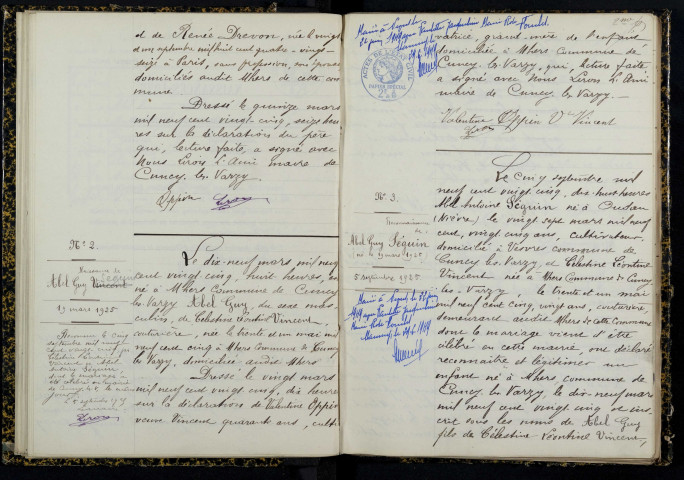 et de Renée Drevon, née le vingt
d'un septembre mil huit cent quatre-vingt-
seize à Paris, sans profession, son épouse
domiciliés audit Mhere de cette com
mune.
Dressé le quinze mars
mil neuf cent vingt-cinq, seize heu
res sur la déclaration du père
qui, lecture faite, a signé avec
Nous Lerois L'Ami maire de
Cuncy les Varzy.
Oppin
N° 2.
Naissance de
Abel Guy Vincent
Séguin
19 mars 1925
Le dix-neuf mars mil neuf
cent vingt cinq, huit heures, est
né à Mhers Commune de Cuncy
les Varzy Abel Guy, du sexe mas
culin, de Célestine Léontine Vincent
couturière, née le trente et un mai mil
neuf cent cinq à Mhers Commune de Cuncy
les Varzy, domiciliée audit Mhers
Dressé le vingt mars
mil neuf cent vingt cinq, dix heures
sur la déclaration de Valentine Oppin
veuve Vincent quarante ans, culti
vatrice, grand-mère de l'enfant
domiciliée à Mhers Commune de
Cuncy les Varzy, qui, lecture faite
a signé avec Nous Lerois L'Ami
maire de Cuncy les Varzy.
Valentine Oppin Ve Vincent
N° 3.
Reconnaissance
de
Abel Guy Séguin
né le 19 mars 1925
5 septembre 1925
Le cinq septembre mil
neuf cent vingt cinq, dix-huit heures
Abel Antoine Séguin né à Oudan
(Nièvre) le vingt sept mars mil neuf
cent, vingt cinq ans, cultivateur
domicilié à Vesvres commune de
Cuncy les Varzy, et Célestine Léontine
Vincent née à Mhers Commune de Cuncy
les-Varzy le trente et un mai
mil neuf cent cinq, vingt ans, couturière
demeurant audit Mhers de cette Commune
dont le mariage vient d'être
célébré en cette mairie, ont déclaré
reconnaître et légitimer un
enfant né à Mhers commune de
Cuncy les Varzy, le dix-neuf mars
mil neuf cent vingt cinq et ins
crit sous les noms de Abel Guy
fils de Célestine Léontine Vincent,